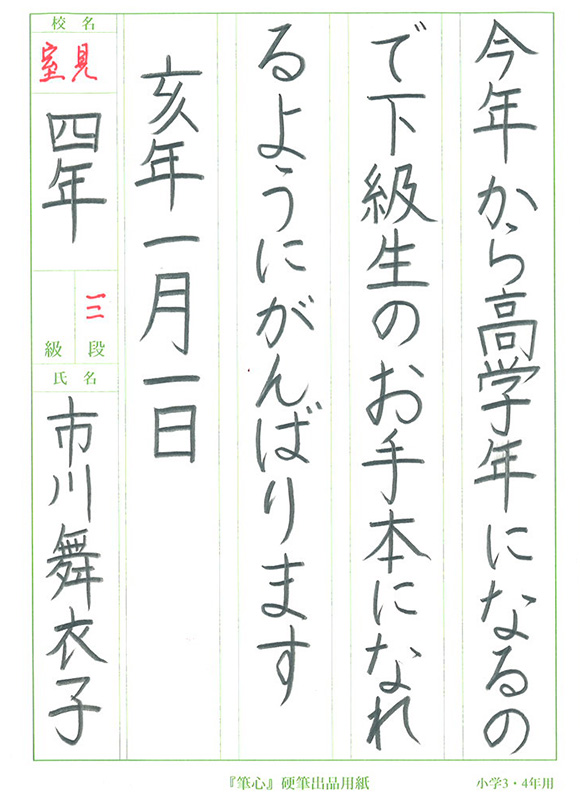 今年から高学年になるの
で下級生のお手本になれ
るようにがんばります
亥年一月一日
校名
室見
四年
三段
級
氏名
市川舞衣子
『筆心』硬筆出品用紙
小学3・4年用